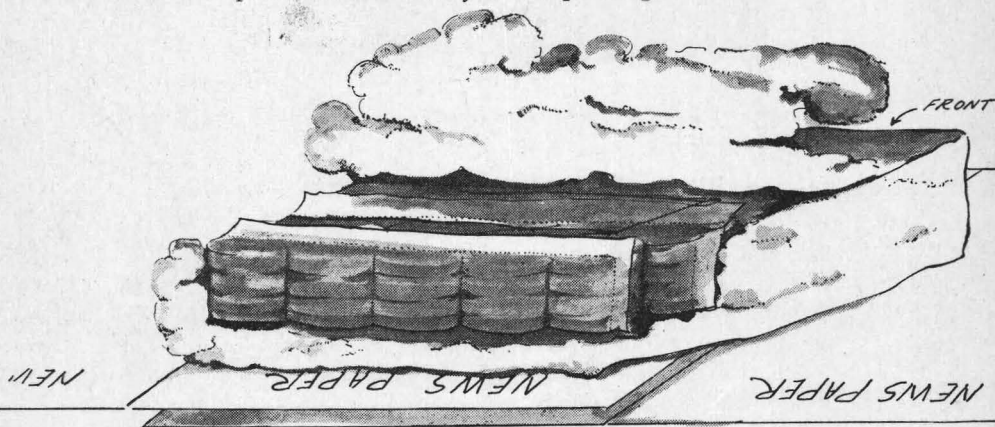 FRONT
NEWS PAPER
NEWS PAPER